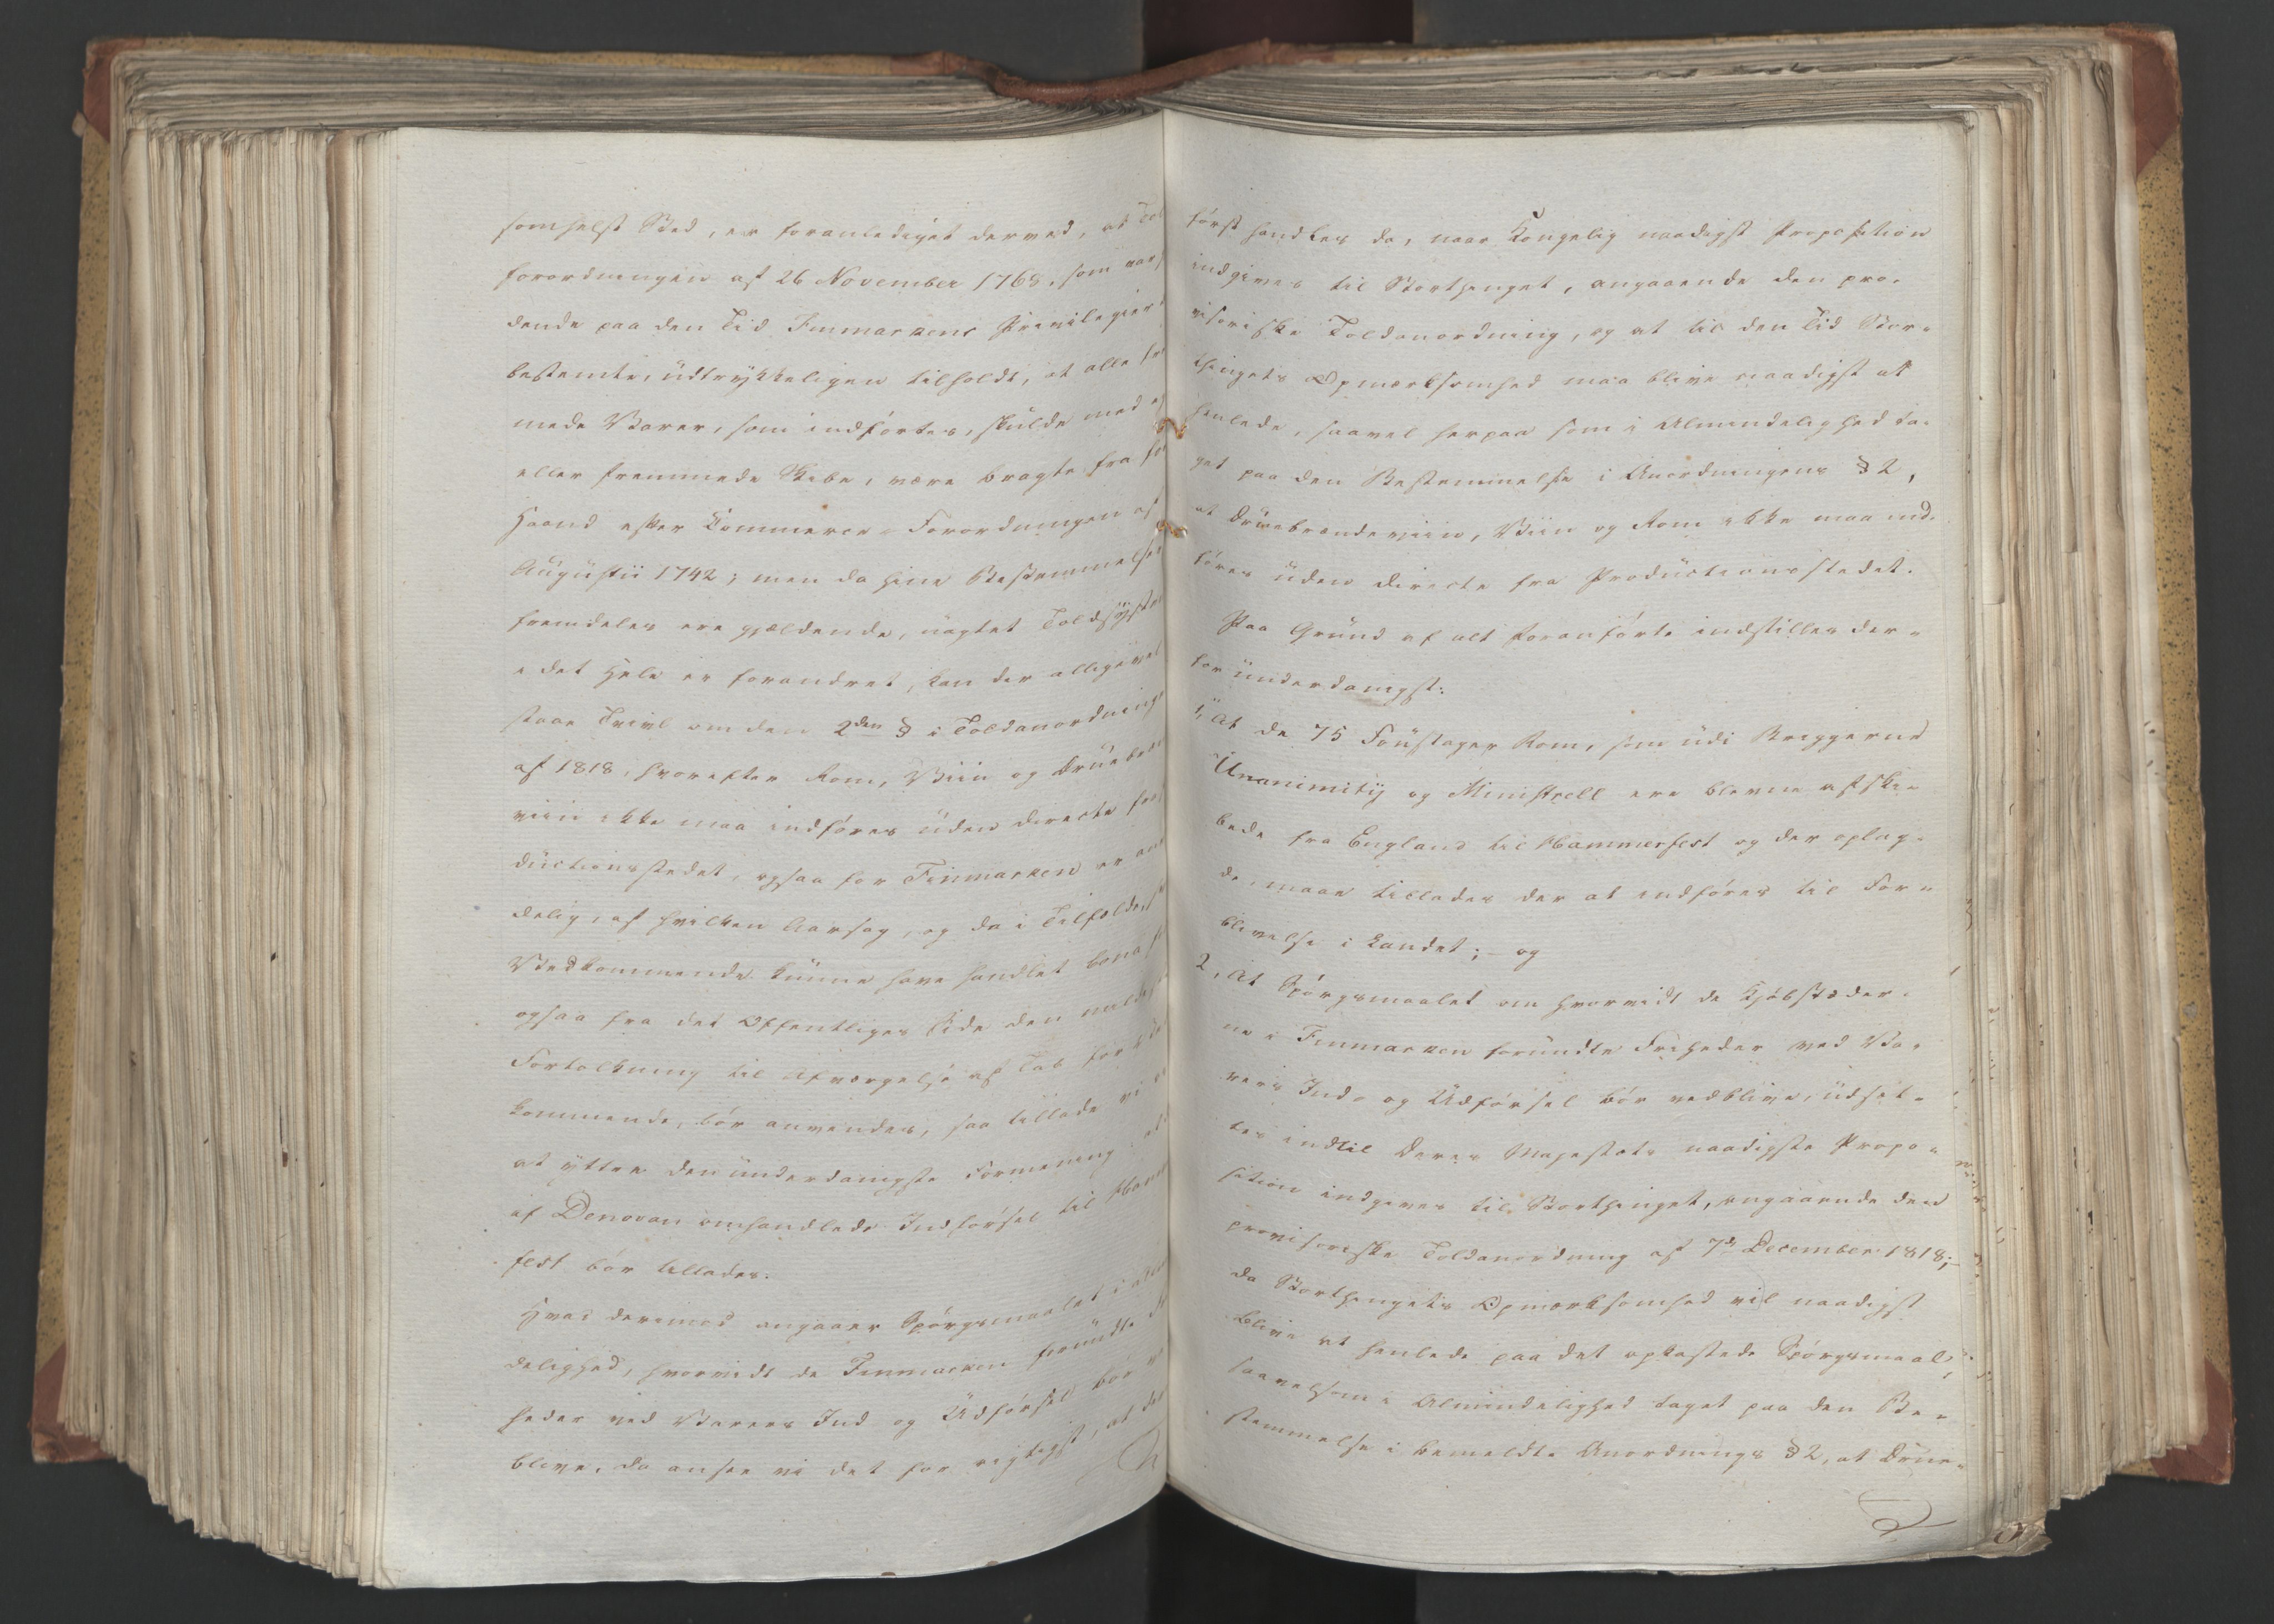 somhelst Sted, er foranlediget derved, at Tol
forordningen af 26 November 1768, som
dende paa den Tid Finmarkens Privilegier
bestemte, üdtrykkeligen tilholdt, at alle
mede Varer, som indførtes, skülde med
eller fremmede Skibe, være bragte fra
Haand efter Commerce-Forordningen af
Aügüstii 1742; men da hine Bestemmelser
fremdeles ere gjældende, üagtet Toldsyste
i det Hele er forandret, kan der alligevel
staae Tvivl om den 2den § i Toldanordning
af 1818, hvorefter Rom, Viin og Drüebræn
viin ikke maa indføres üden directe fra
düctionsstedet, ogsaa for Finmarken er an
delig, af hvilken Aarsag, og da i Tilfælde,
Vedkommende künne have handlet bona
ogsaa fra det Offentliges Side den milde
Fortolkning til Afværgelse af Tab for
kommende, bør anvendes, saa tillade vi
at yttre den ünderdanigste Formening: at
af Denovan omhandlede Indførsel til Hamm
fest bør tillades.
Hvad derimod angaaer Spørgsmaalet i Almin
delighed, hvorvidt de Finmarken foründte
heder ved Varers Ind og Üdførsel bør
blive, da ansee vi det for rigtigst, at det
først handles da, naar Kongelig naadigst Proposition
indgives til Storthinget, angaaende den pro-
visoriske Toldanordning, og at til den Tid Stor-
thingets Opmærksomhed maa blive naadigst at
henlede, saavel herpaa som i Almindelighed ta-
get paa den Bestemmelse i Anordningens § 2,
at Drüebrændeviin, Viin og Rom ikke maa ind-
føres üden directe fra Prodüctionsstedet.
Paa Gründ af alt foranførte indstilles der-
for ünderdanigst:
1, At de 75 Foüstager Rom, som üdi Briggerne
Ünanimity og Ministrell ere blevne afski-
bede fra England til Hammerfest og der oplag-
de, maae tillades der at indføres til For-
blivelse i Landet; - og
2, At Spørgsmaalet om hvorvidt de Kjøbstæder-
ne i Finmarken foründte Friheder ved Va-
rers Ind- og Üdførsel bør vedblive, üdsæt-
tes indtil Deres Majestæts naadigste Propo-
sition indgives til Storthinget, angaaende den
provisoriske Toldanordning af 7de December 1818;-
da Storthingets Opmærksomhed vil naadigst
blive at henlede paa det opkastede Spørgsmaal,
saavelsom i Almindelighed taget paa den Be-
stemmelse i bemeldte Anordnings § 2, at Drüe-